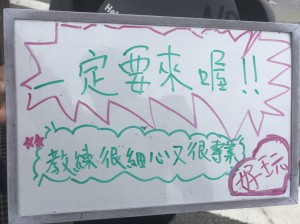 一定要來喔!!
教練很細心又很專業
好玩